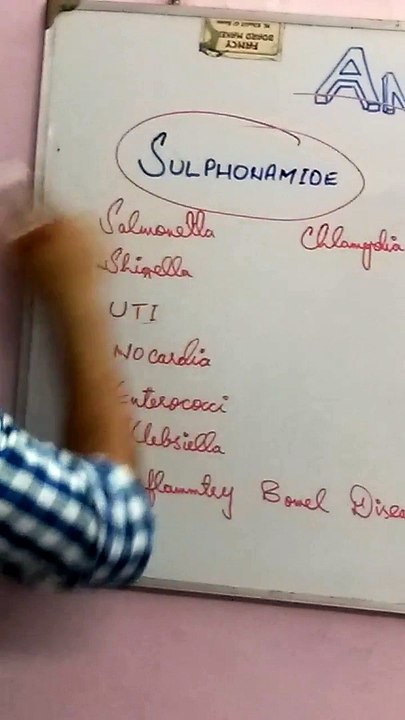 FANCY
BOARD MARKER
AN
SULPHONAMIDE
Salmonella Chlamydia
Shigella
UTI
Nocardia
Enterococci
Klebsiella
flammtry Bowel Disea